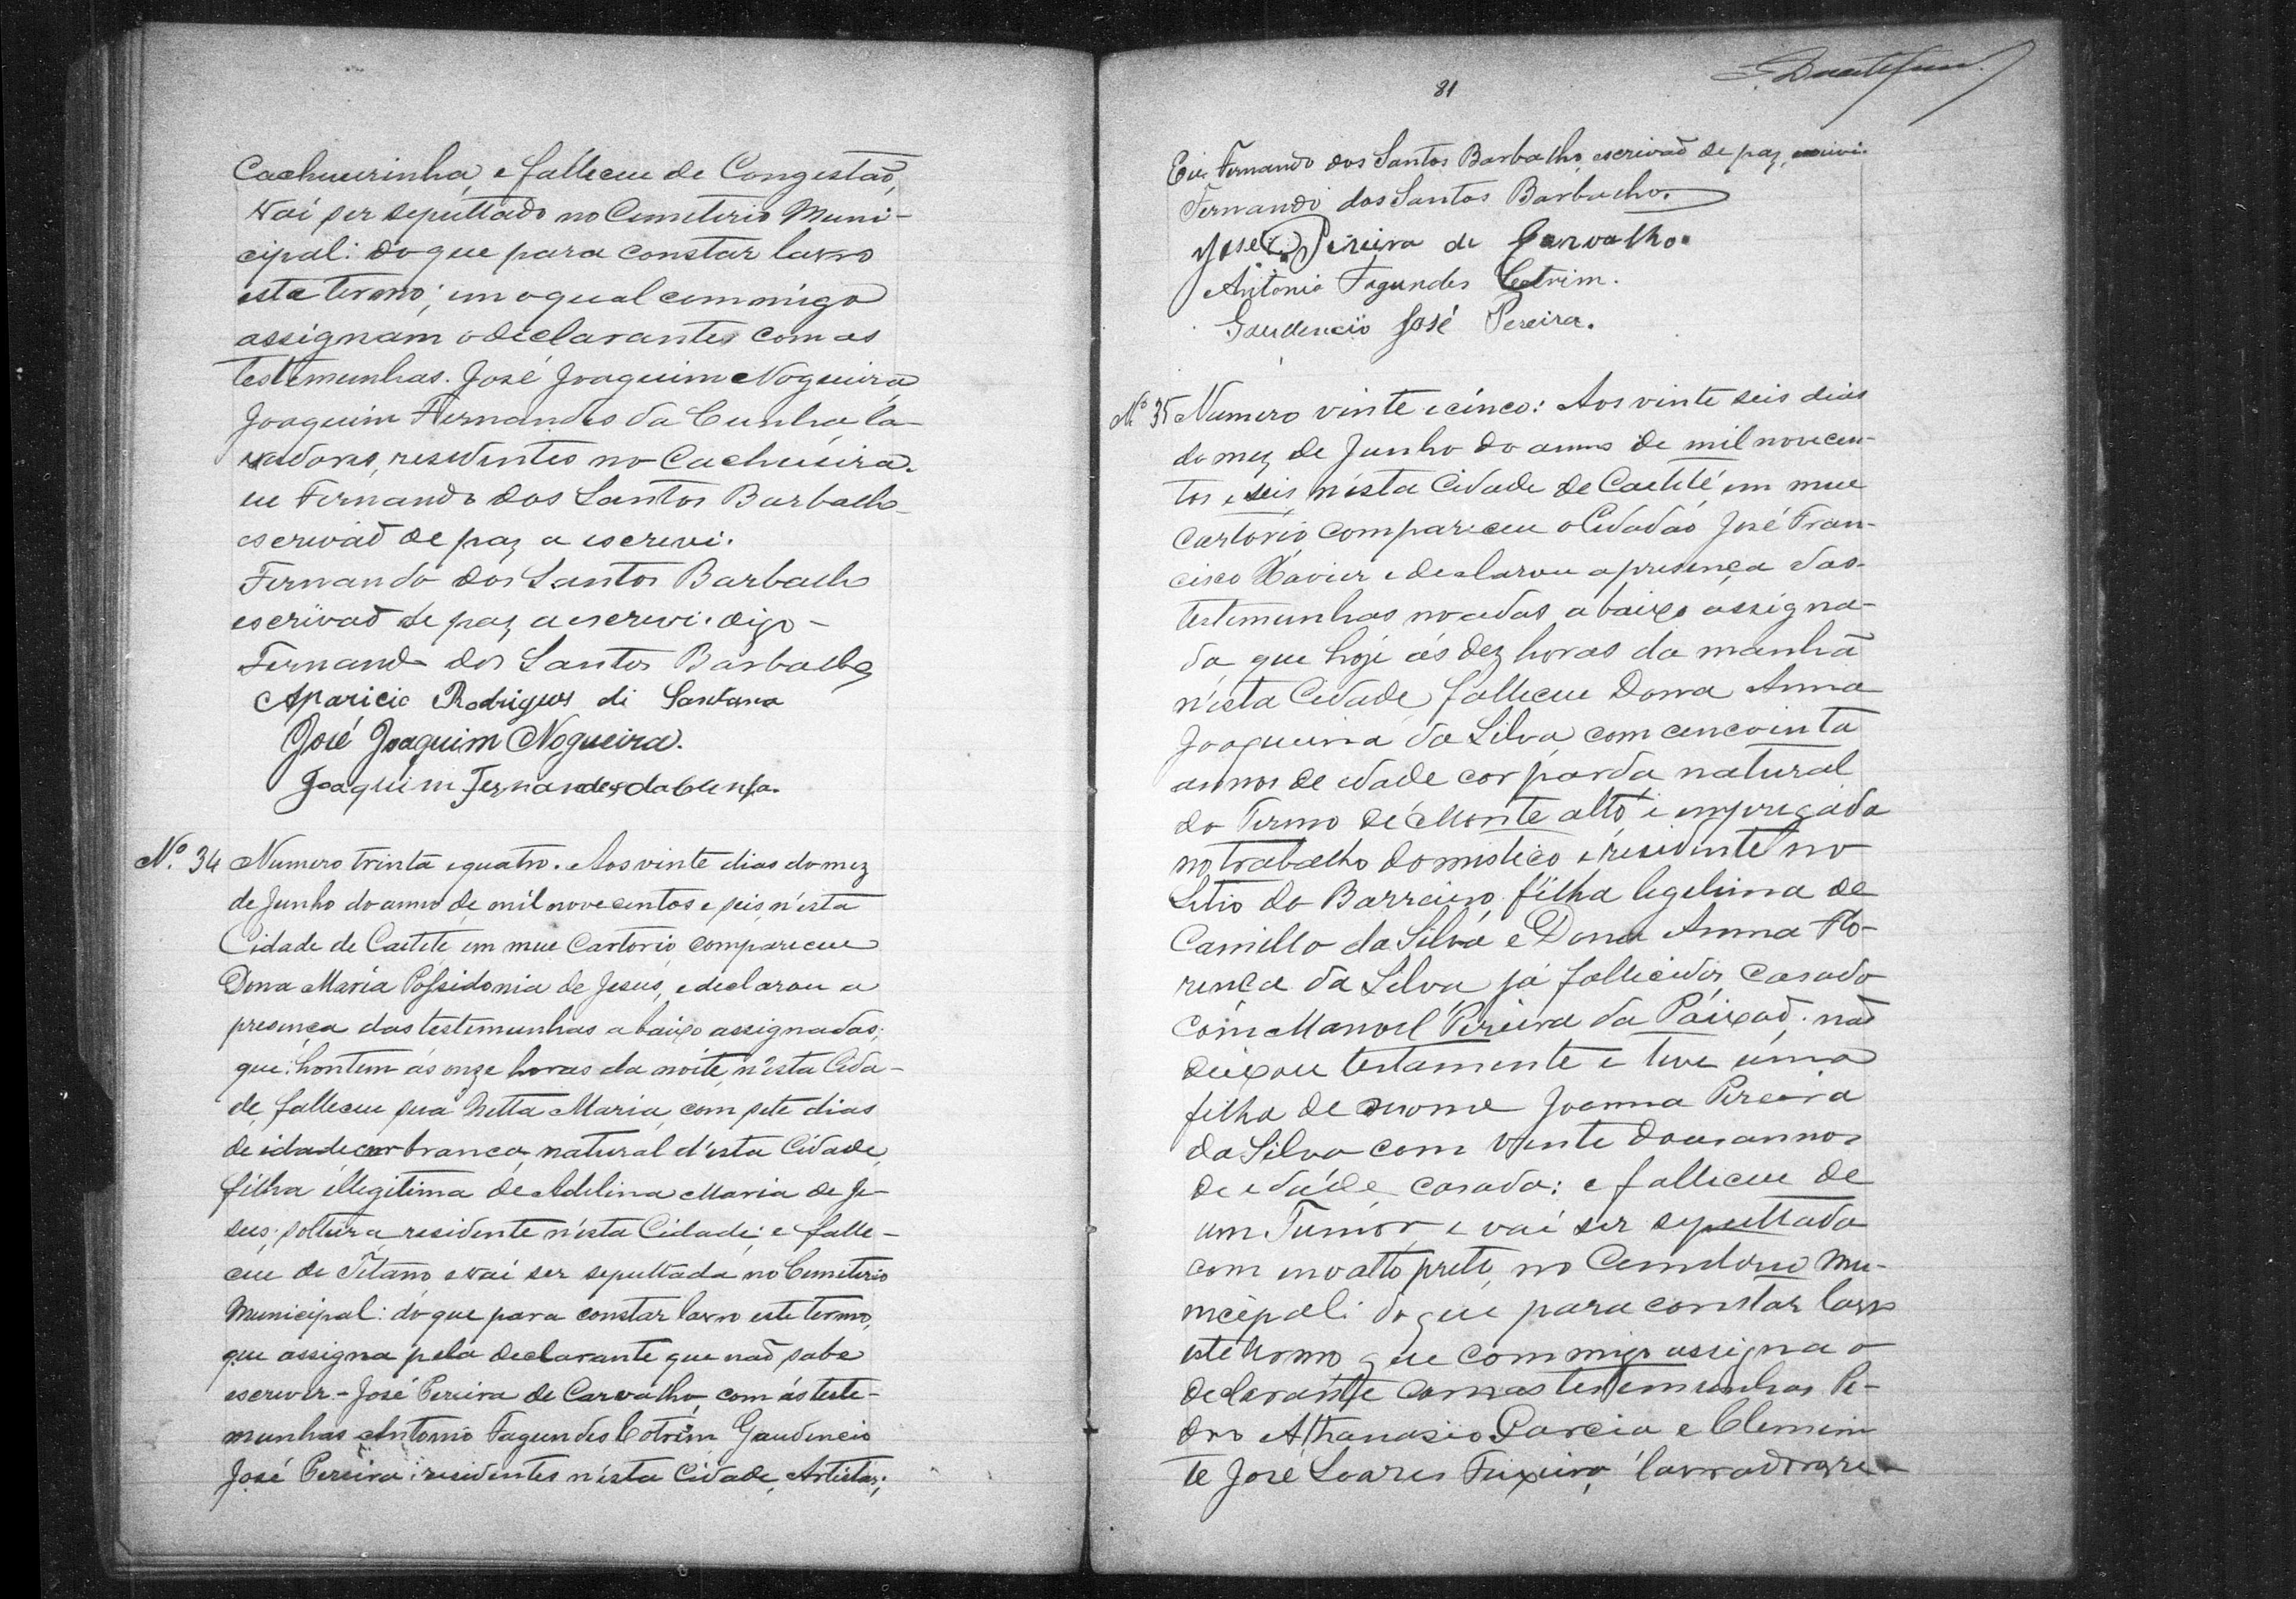 Cachueirinha, e falleceu de Congestão,
Vai ser sepultado no Cemeterio Muni-
cipal: do que para constar lavro
este termo; em o qual commigo
assignam o declarante, com as
testemunhas. José Joaquim Nogueira
Joaquim Fernandes da Cunha la-
vradores, residentes no Cachueira.
eu Fernando dos Santos Barbalho
escrivaõ de paz a escrevi.
Fernando dos Santos Barbalho
escrivaõ de paz a escrevi. digo-
Fernando dos Santos Barbalho
Aparicio Rodrigues di Santana
José Joaquim Nogueira.
Joaquim Fernandes da Cunha.
Nº. 34 Numero trinta e quatro. Aos vinte dias do mez
de Junho do anno de mil nove centos e seis, n'esta
Cidade de Caeteté, em meu Cartorio, compareceu
Dona Maria Possidonia de Jesus, e declarou a
presença das testemunhas abaixo assignadas;
que: hontem ás onze horas da noite, n'esta Cida-
de, falleceu sua Netta Maria, com sete dias
de idade cor branca, natural d'esta Cidade,
filha illegitima de Adelina Maria de Je-
sus, solteira, residente n'esta Cidade; e falle-
ceu de Tetano, e vai ser sepultada no Cemeterio
Municipal: do que para constar lavro este termo,
que assigna pela declarante que naõ sabe
escrever - José Pereira de Carvalho, com ás teste-
munhas Antonio Fagundes Cotrim Gaudencio
José Pereira: residentes n'esta Cidade, Artistas;
81
Eu Fernando dos Santos Barbalho, escrivaõ de paz, escrivi.
Fernando dos Santos Barbalho.
José Pereira de Carvalho.
Antonio Fagundes Cotrim.
Gaudencio José Pereira.
Nº 35 Numero vinte e cinco: Aos vinte seis dias
do mez de Junho do anno de mil novecen-
tos e seis, n'esta Cidade de Caeteté, em meu
Cartorio, compareceu o Cidadão José Fran-
cisco Xavier e declarou a presença das-
testemunhas abaixo assigna-
da que hoje ás dez horas da manhã
n'esta Cidade, falleceu Dona Anna
Joaquina da Silva, com cencointa
annos de edade cor parda, natural
do Termo de Monte alto e empregada
no trabalho domestico e residente no
Sitio do Barreiro, filha legetima de
Camillo da Silva e Dona Anna Flo-
rença da Silva já fallecidos, Casada
com Manoel Pereira da Paixaõ. naõ
deixou testamente e teve uma
filha de nome Joanna Pereira
da Silva com vinte dous annos
de edade, casada: e falleceu de
um Tumor, e vai ser sepultada
com invalto preto, no Cemeterio Mu-
nicipal: do que para constar lavro
este termo que commigo assigna o
declarante com as testemunhas Pe-
dro Athanasio Garcia e Clemen-
te José Soares Teixeira, lavradores re-